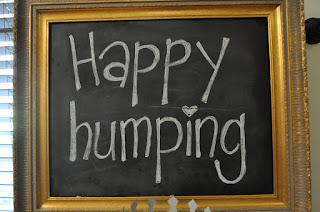 Happy
humping